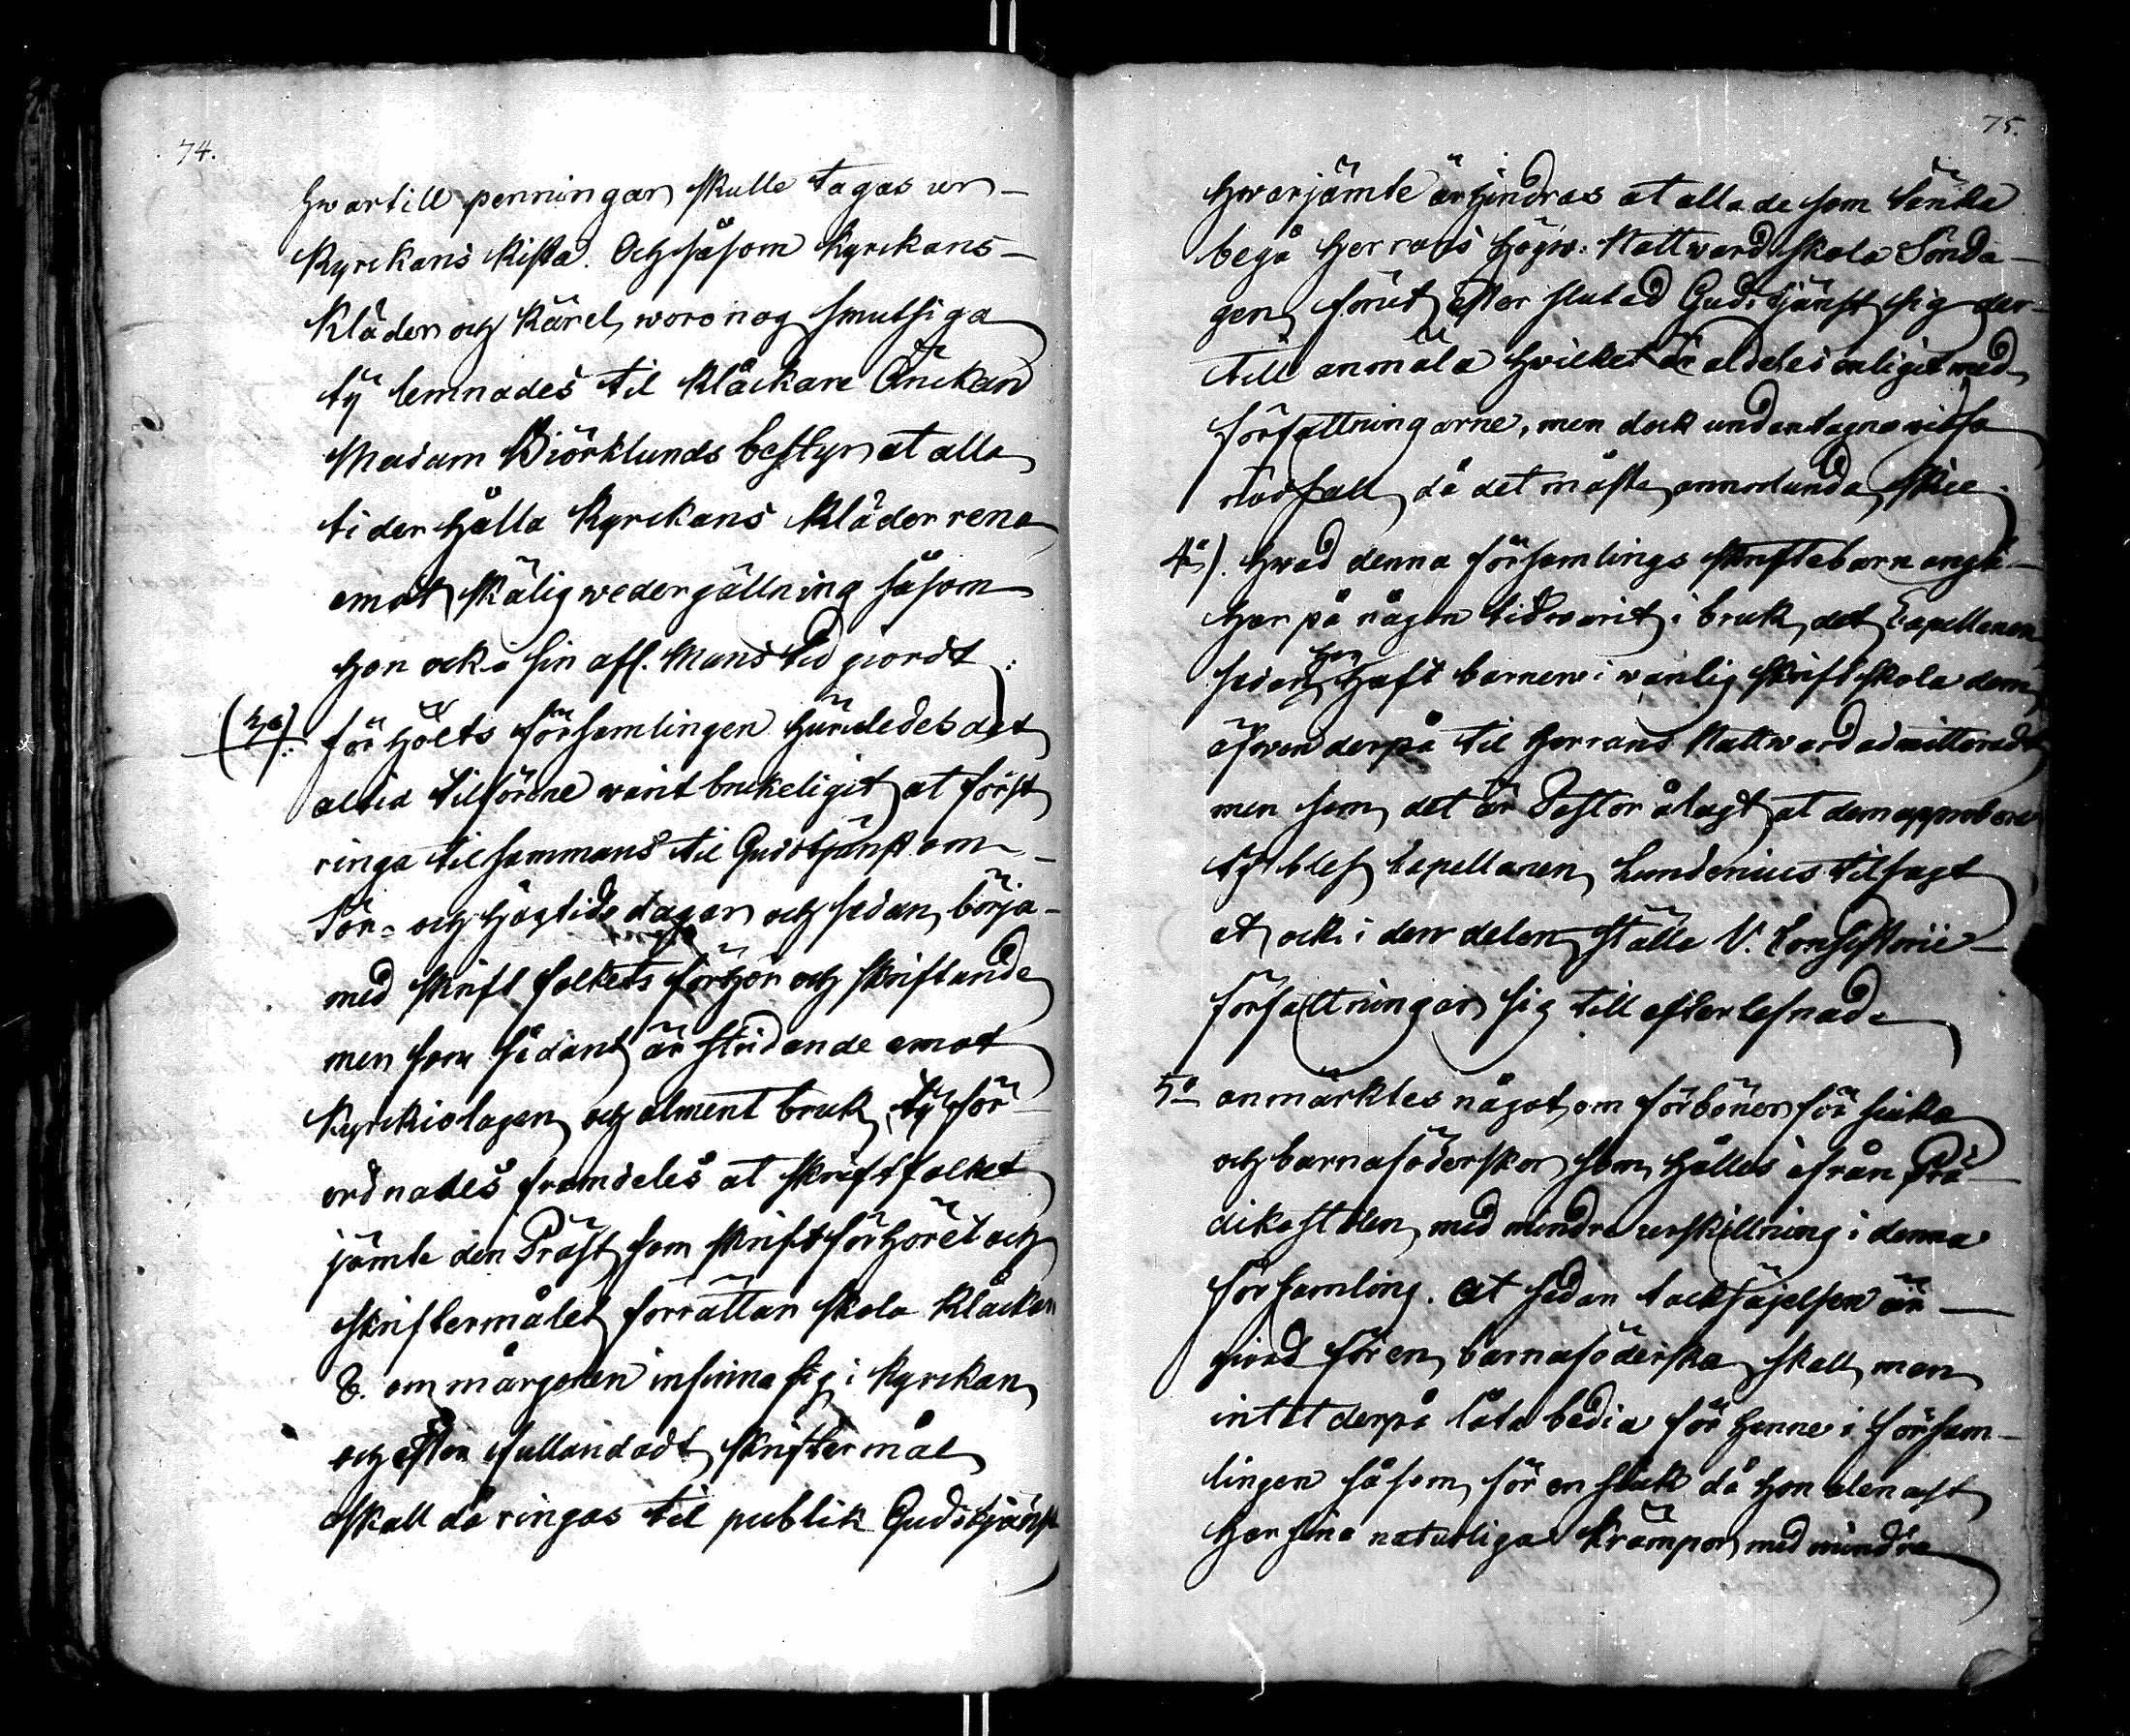 74.
hwartill penningar skulle tagas ur
Kyrckans kista. Och såsom Kyrckans
Kläder och Kärel woro nog smutsiga
ty lemnades til Klåckare Änckan
Madam Biörklunds bestyr at alla
tider hålla Kyrckans Kläder rena
emot skälig wedergällning såsom
hon ock i sin afl. Mans tid giordt.
förhölts församlingen huruledes det
altid tilförene warit brukeligit at först
ringa tilsammans til Gudstjänst om
Sön- och högtids dagar och sedan börja
med skrift folkets förhör och skriftande
men som sådant är stridande emot
Kyrckiolagen och alment bruk, ty för-
ordnades framdeles at skriftfolket
jämte den Präst som skriftförhöret och
skriftermålet förrättar skola Klåckan
8. om morgonen infinna sig i Kyrckan
och efter fullandadt skriftermål
skall då ringas til publik Gudstjänst
75.
hwarjämte ärhindras at alla de som tänka
begå Herrans högw: Nattward skola Sönda-
gen förut efter slutad Gudstjänst sig der-
till anmäla hwilket är aldeles enligit med
författningarne, men dock undantagne wissa
nödfall då det måste annorlunda skie.
4o). hwad denna församlings skriftebarn angår
har på någon tid warit i bruk, det Capellanen
sedan han haft barnen i wanlig skriftskola dem
äfwen derpå til Herrans Nattward admitteradt
men som det är Pastor ålagt at dem approbera
ty blef Capellanen Lundenius tilsagt
at ock i den delen ställa V. Consistorii
författningar sig till efterlefnad
5o anmärktes något om förböner för siuka
och barnasöderskor som hålles ifrån Prä-
dikostolen med mindre urskillning i denna
församling. At sedan tacksäjelsen är
giord för en barnasöderska skall man
intet derpå låta bedia för henne i försam-
lingen såsom för en siuk då hon alenast
har sina naturliga Krämpor med mindre